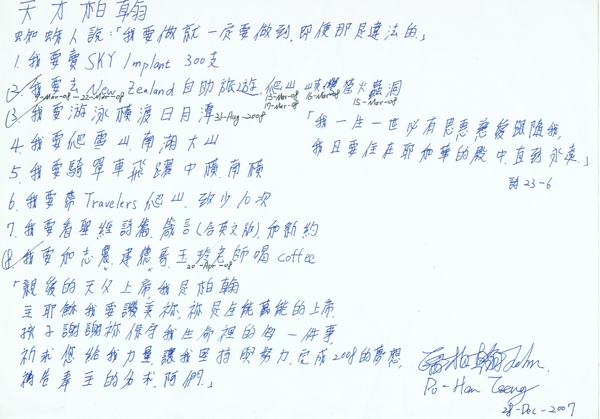 天才柏翰
蜘蛛人說:「我要做就一定要做到,即便那是違法的.」
1. 我要賣 SKY Implant 300支
2. 我要去 New Zealand 自助旅遊,爬山,峽灣,螢火蟲洞
9-Mar-08 ~ 22-Mar-08 15-Mar-08 17-Mar-08 16-Mar-08 15-Mar-08
3. 我要游泳橫渡日月潭 31-Aug-2008
4. 我要爬雪山,南湖大山
5. 我要騎單車飛躍中橫,南橫
6. 我要帶 Travelers 爬山,致少10次
7. 我要看聖經詩篇,箴言(含英文版),和新約
8. 我要和志農,建德哥,玉玲老師喝 coffee
20-Apr-08
「我一生一世必有恩惠慈愛隨我,
我且要住在耶和華的殿中,直到永遠.」
詩 23-6
「親愛的天父上帝,我是柏翰
主耶穌我要讚美祢,祢是全能萬能的上帝,
孩子謝謝祢保守我生命裡的每一件事,
祈求您給我力量,讓我堅持與努力,完成2008的夢想,
禱告奉主的名求,阿們」
曾柏翰 John.
Po-Han Tseng
28-Dec-2007